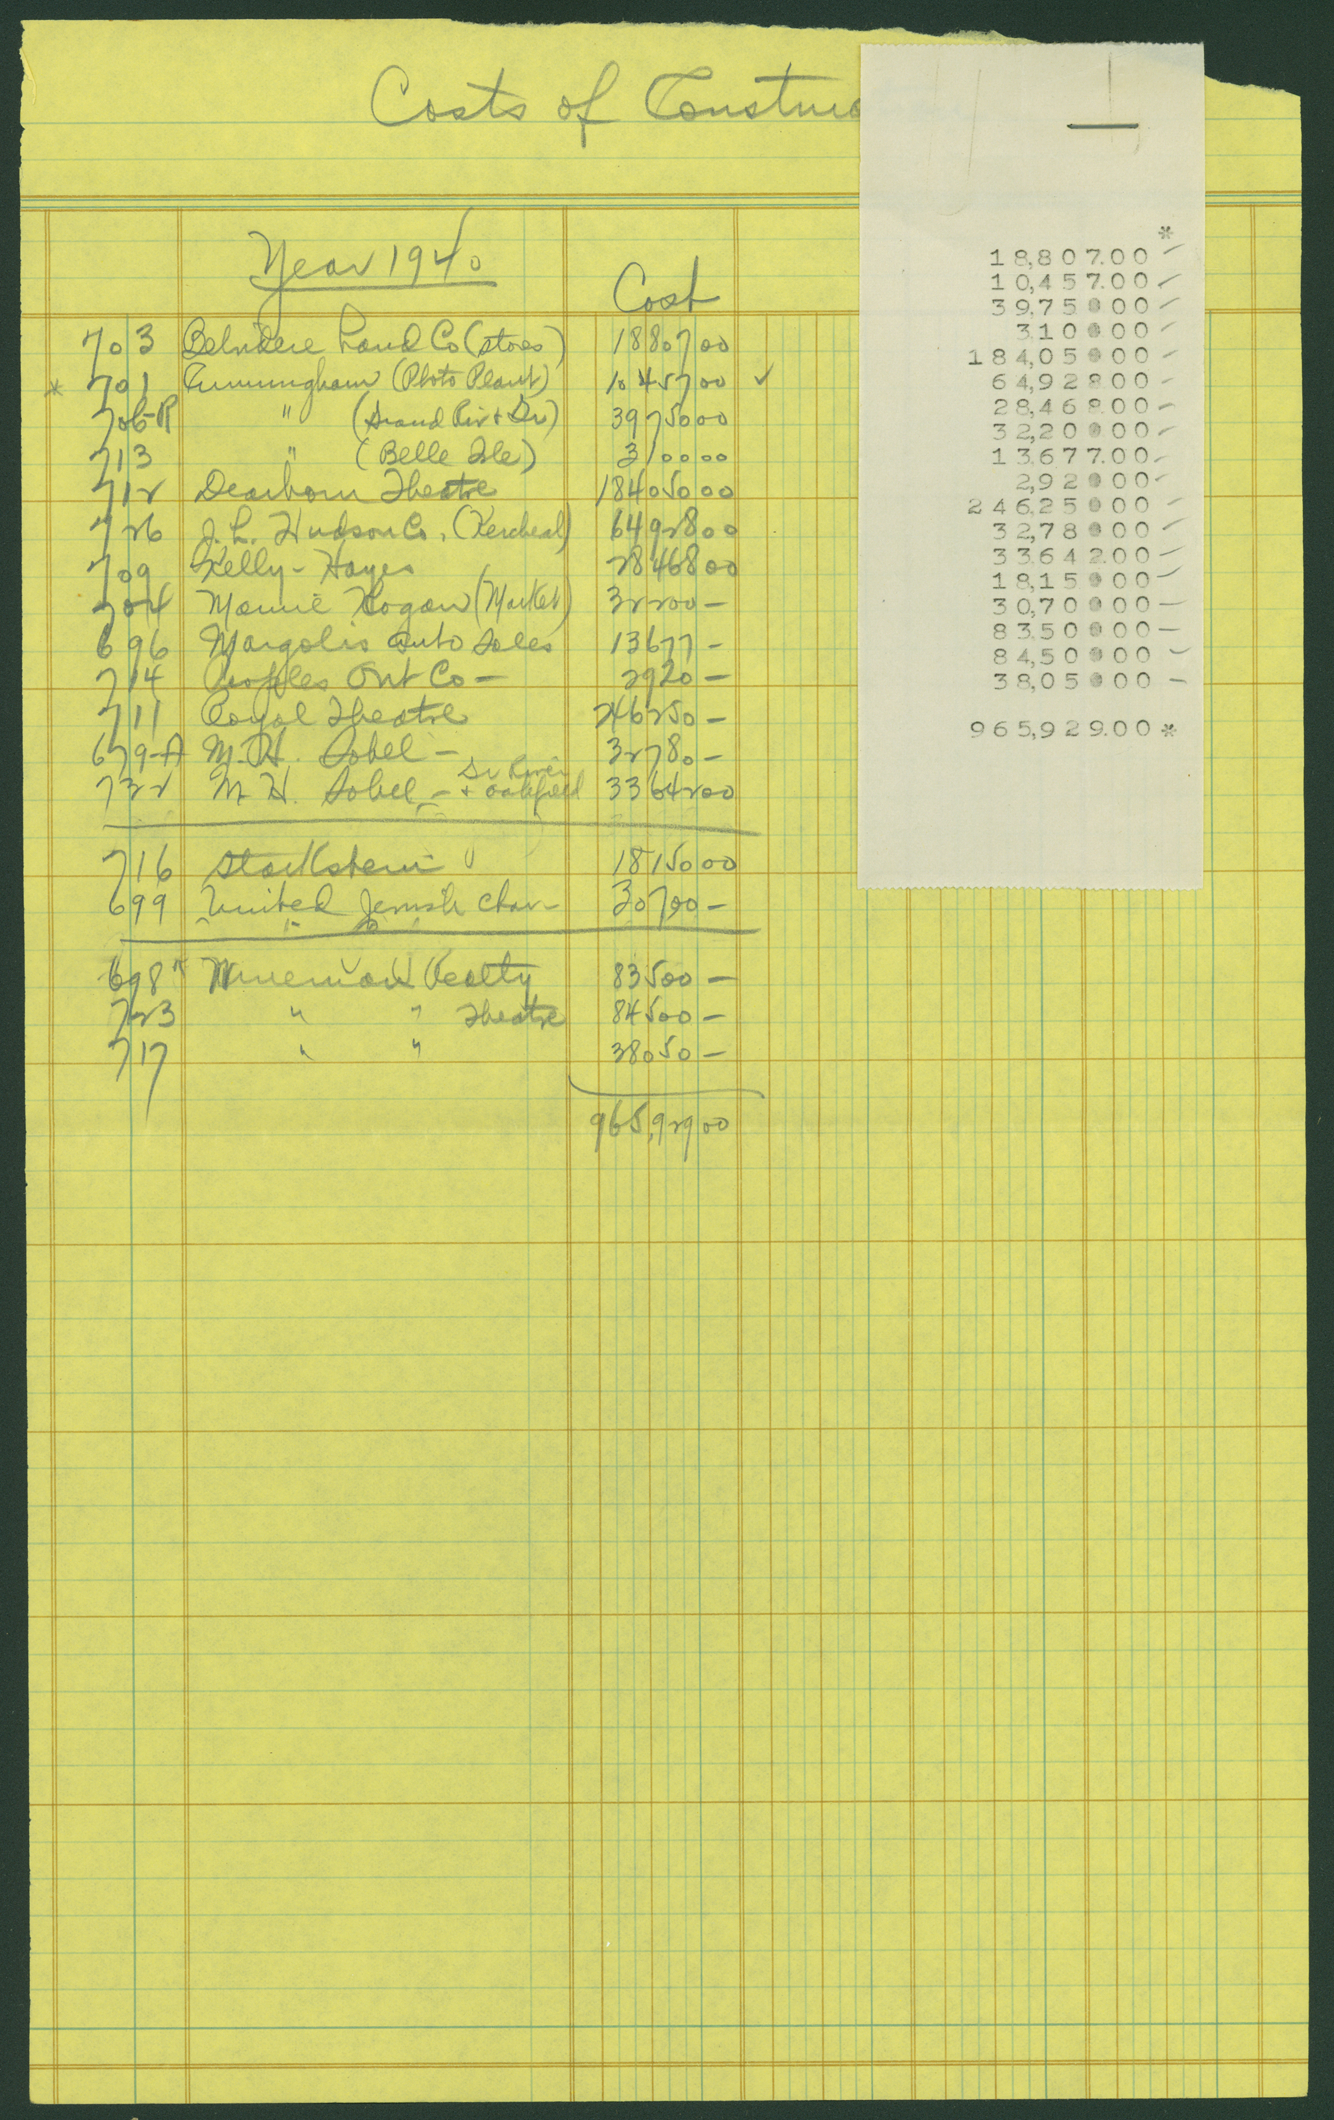 Costs of Construc
Year 1940
Cost
703 Belvidere Land Co (stores) 18807 00
* 701 Cunningham (Photo Plant) 10457 00 ✓
706-R " (Grand Riv + Dr) 39750 00
713 " (Belle Isle) 3100 00
712 Dearborn Theatre 184050 00
726 J. L. Hudson Co. (Kercheval) 64928 00
709 Kelly-Hayes 28468 00
704 Mannie Kogan (Market) 32200 —
696 Margolis Auto Sales 13677 —
714 Peoples Out Co — 2920 —
711 Royal Theatre 246250 —
679-A M. H. Sobel — 32780 —
732 M. H. Sobel — Gr River + Oakfield 33642 00
716 Starkstein 18150 00
699 United Jewish Char — 30700 —
698 Realty 83500 —
723 " " Theatre 84500 —
717 " " 38050 —
965,929 00
*
18,807.00
10,457.00
39,750.00
3,100.00
184,050.00
64,928.00
28,468.00
32,200.00
13,677.00
2,920.00
246,250.00
32,780.00
33,642.00
18,150.00
30,700.00
83,500.00
84,500.00
38,050.00
965,929.00 *